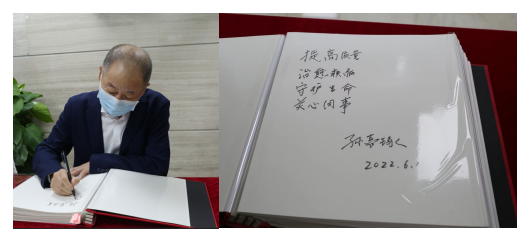 提高质量
治愈疾病
守护生命
关心同事
2022.6.1